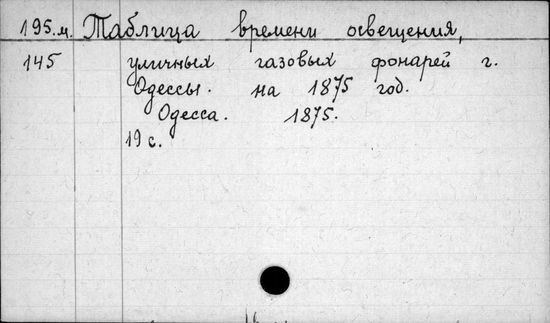 195.м. Таблица времени освещения,
145 уличных газовых фонарей г.
Одессы. на 1875 год.
Одесса. 1875.
19 с.